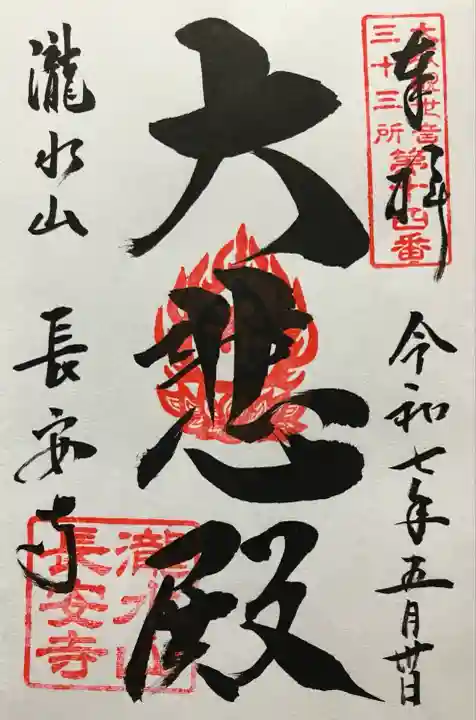 奉拝
令和七年五月廿日
大悲殿
瀧水山 長安寺
三十三所
第十四番
瀧水山
長安寺